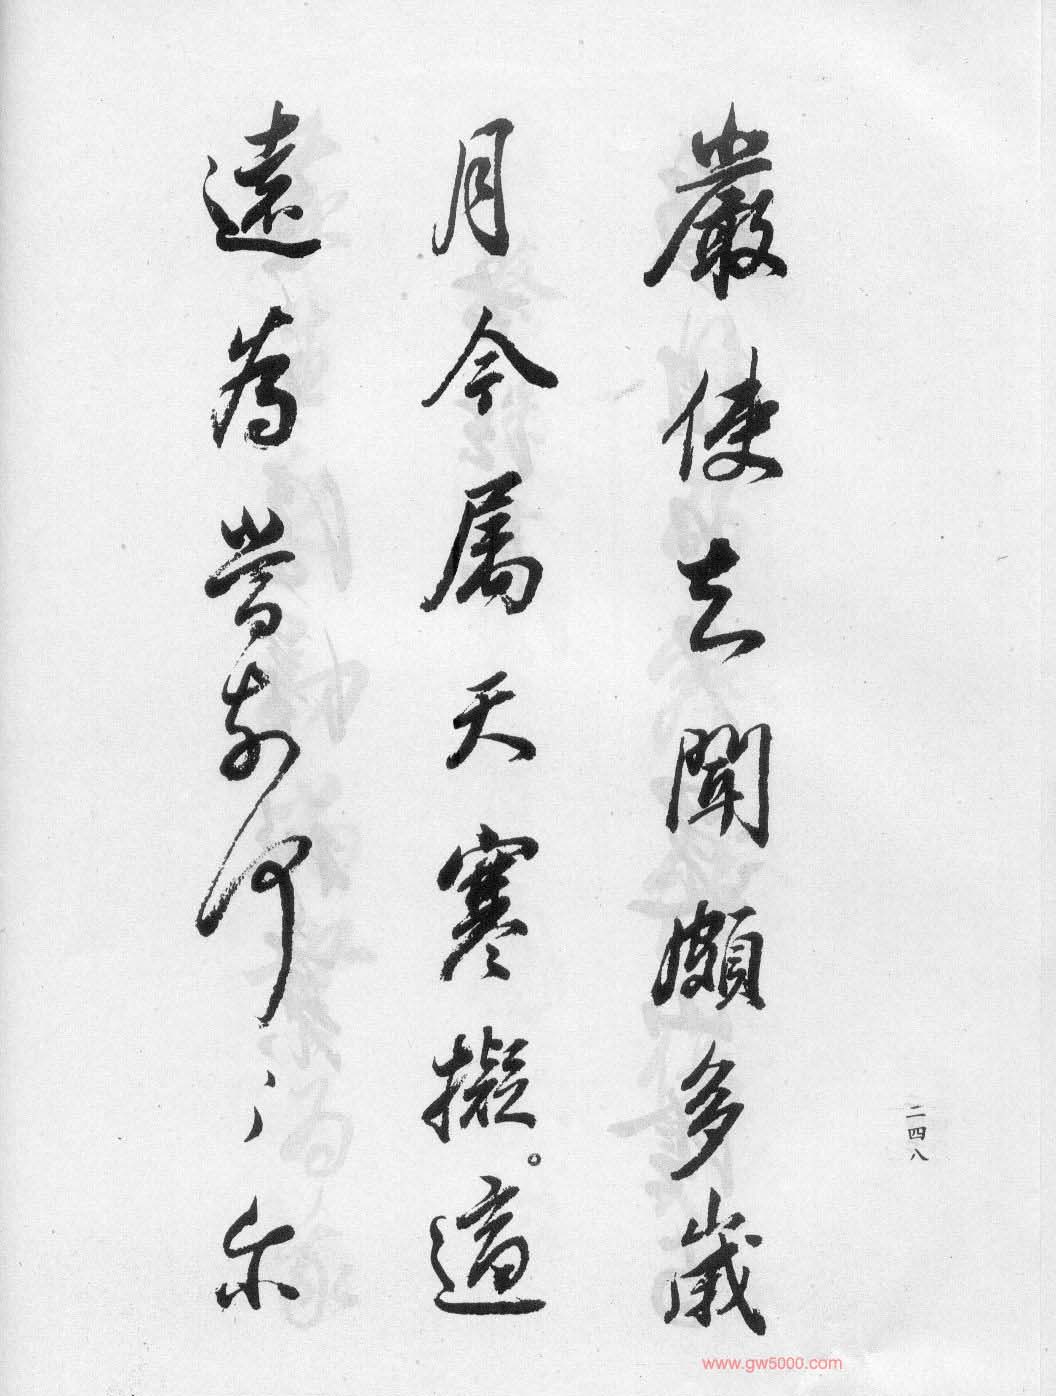 嚴使去聞頗多歲
月今屬天寒擬。適
遠為當奈何〻尔
二四八
www.gw5000.com